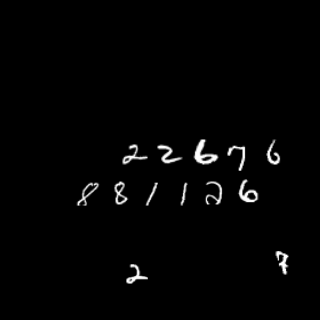 22676
881126
2 7